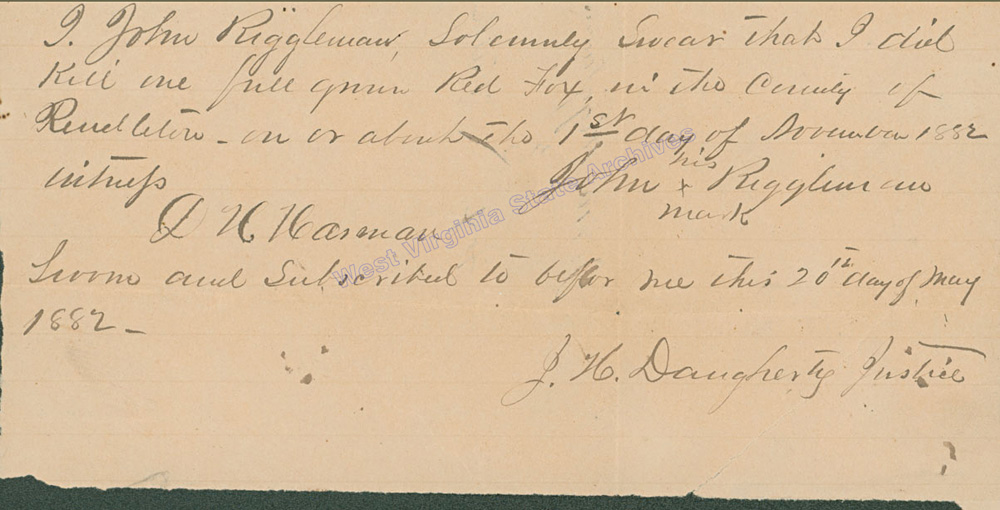 I. John Riggleman, Solemnly Swear that I did
Kill one full grown Red Fox, in the County of
Pendleton - on or about the 1st day of November 1882
witness
John his x mark Riggleman
D H Harman
Sworn and Subscribed to before me this 20th day of May
1882 -
J. H. Daugherty Justice
West Virginia State Archives